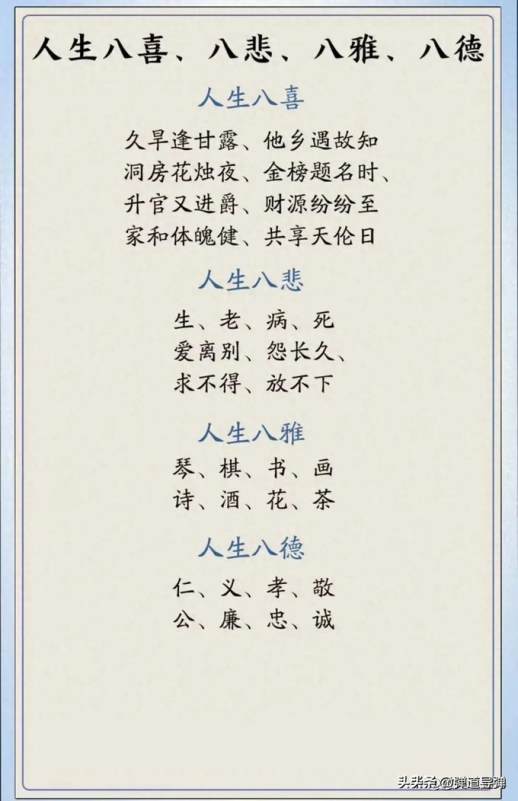 人生八喜、八悲、八雅、八德
人生八喜
久旱逢甘露、他乡遇故知
洞房花烛夜、金榜题名时、
升官又进爵、财源纷纷至
家和体魄健、共享天伦日
人生八悲
生、老、病、死
爱离别、怨长久、
求不得、放不下
人生八雅
琴、棋、书、画
诗、酒、花、茶
人生八德
仁、义、孝、敬
公、廉、忠、诚
头条 @弹道导弹